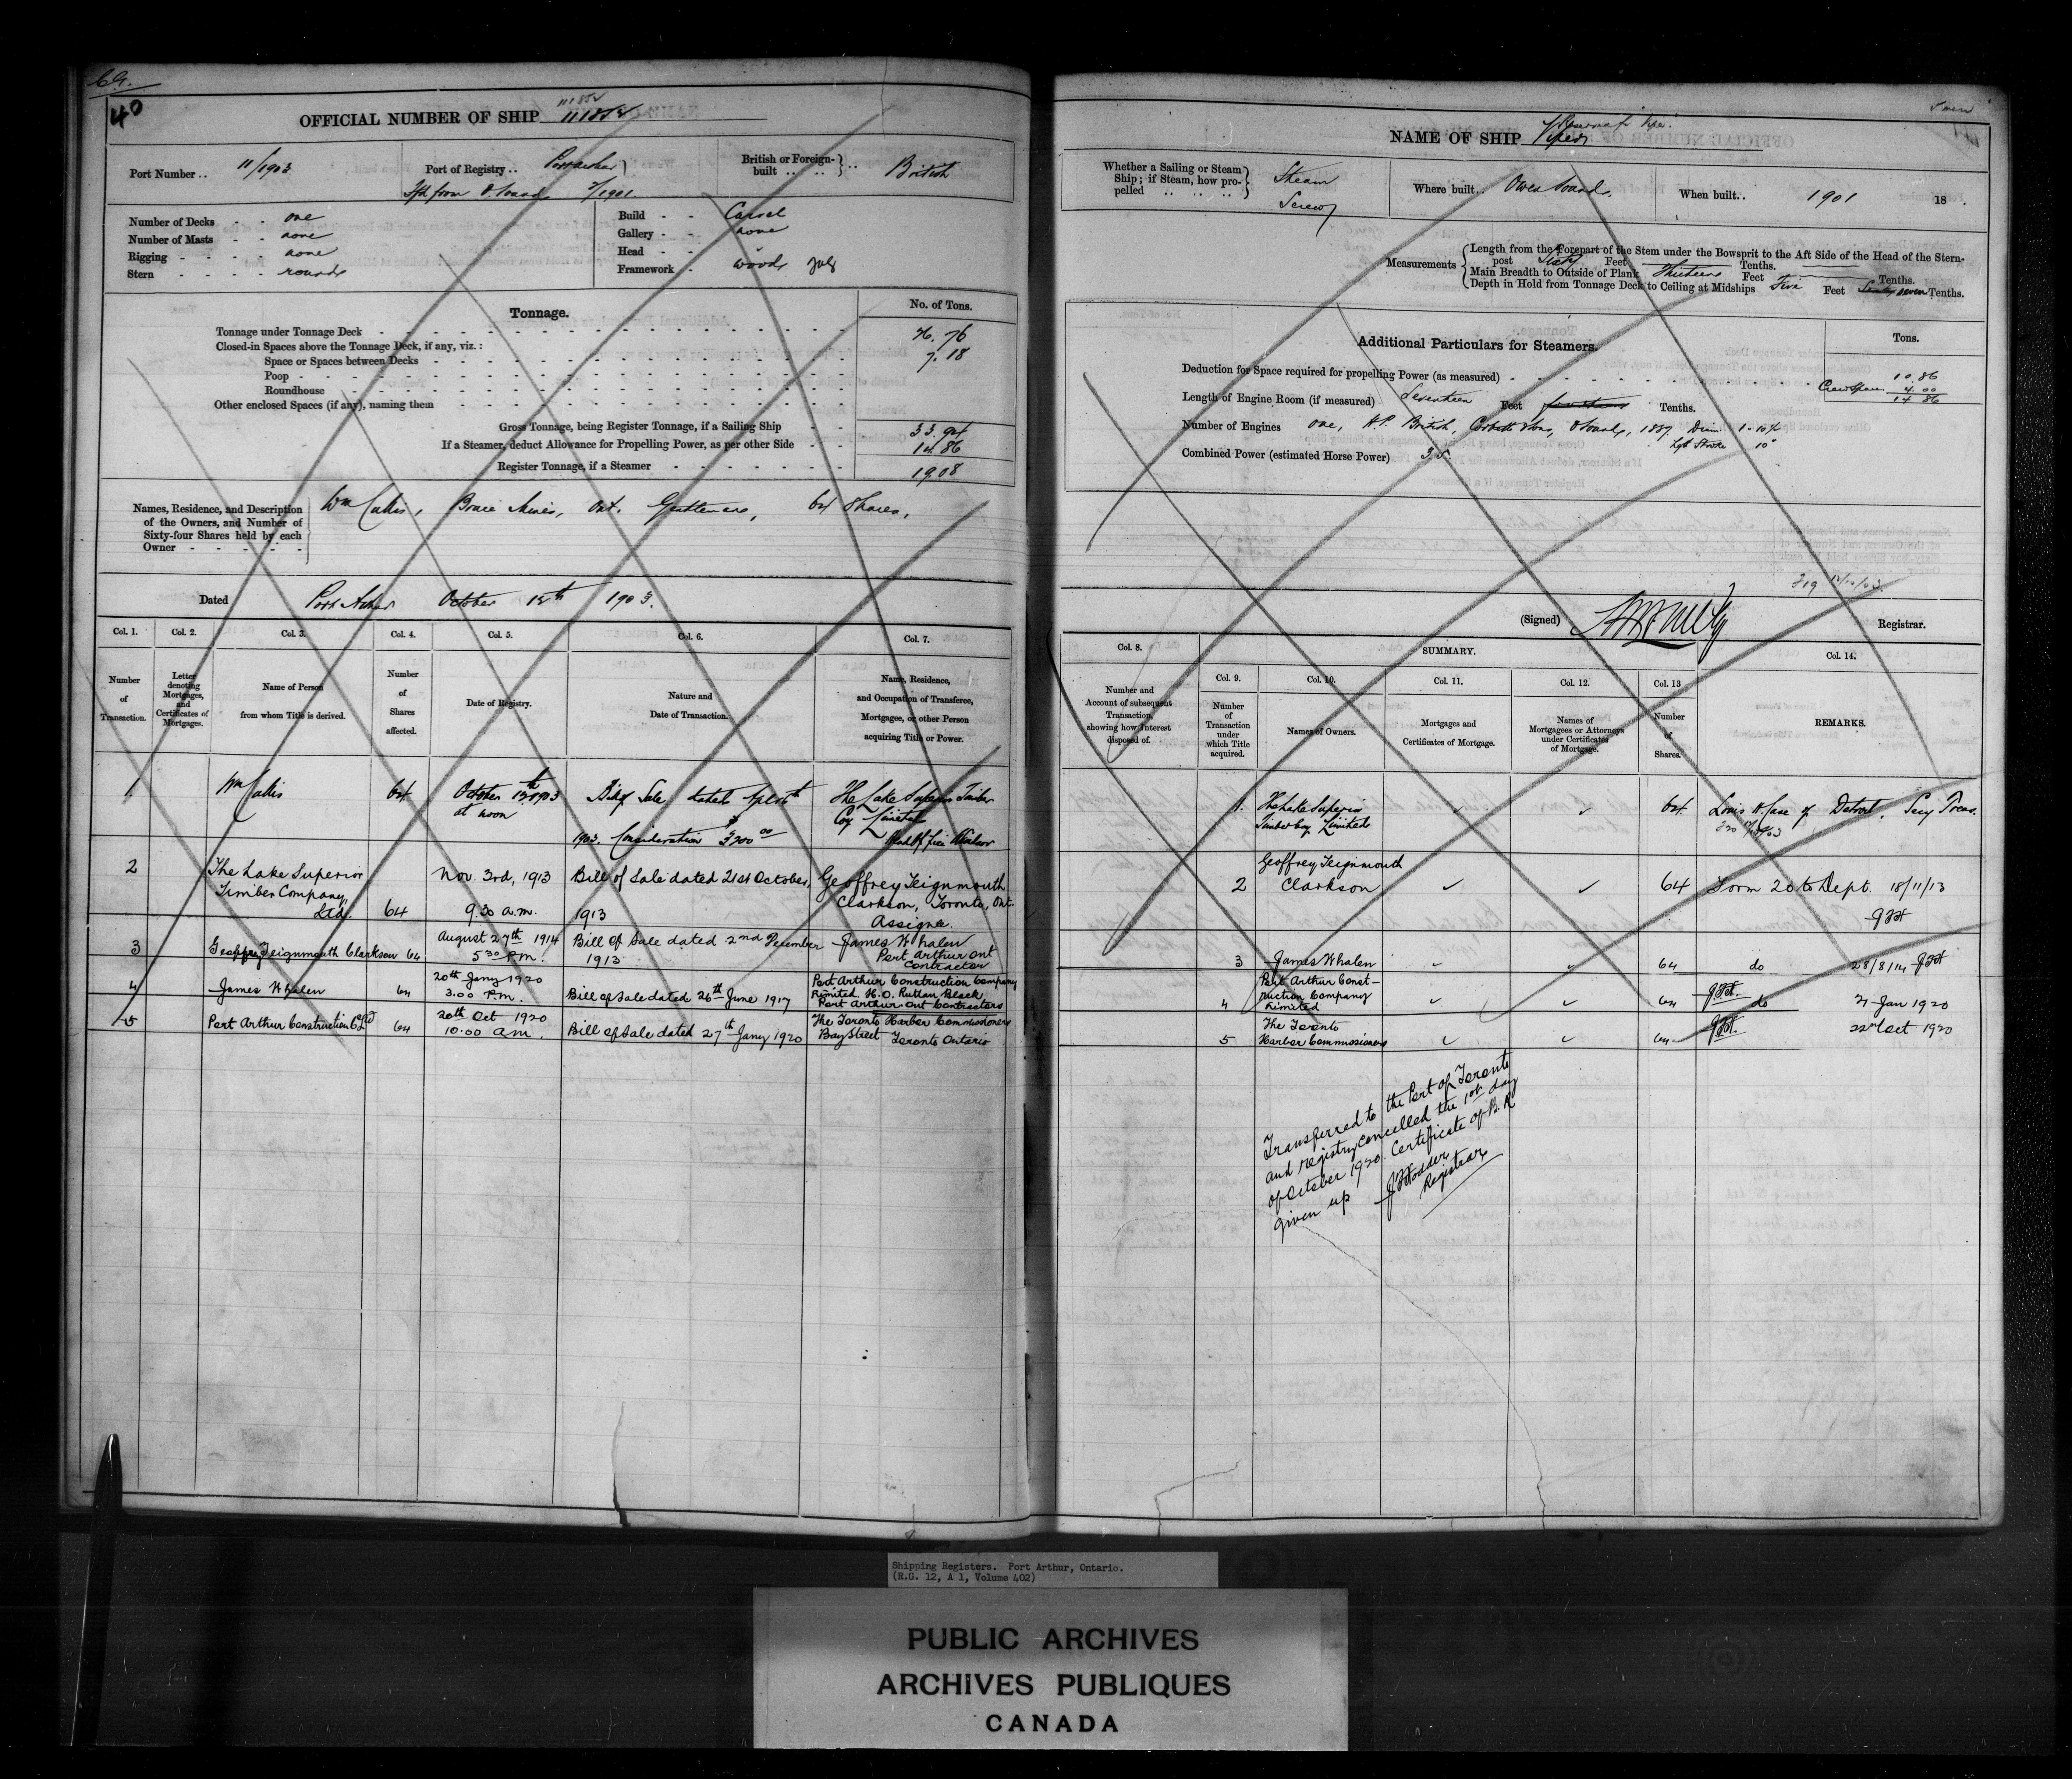 40
OFFICIAL NUMBER OF SHIP 111852
Port Number .. 11/1903
Port of Registry .. Port Arthur
British or Foreign-built .. British
from O. Sound /1901
Number of Decks - - one
Number of Masts - - none
Rigging - - - - none
Stern - - - - round
Build - - Carvel
Gallery - - none
Head - - "
Framework - wood
Tonnage.
No. of Tons.
Tonnage under Tonnage Deck 26.76
Closed-in Spaces above the Tonnage Deck, if any, viz.:
Space or Spaces between Decks 7.18
Poop
Roundhouse
Other enclosed Spaces (if any), naming them
Gross Tonnage, being Register Tonnage, if a Sailing Ship 33.94
If a Steamer, deduct Allowance for Propelling Power, as per other Side 14.86
Register Tonnage, if a Steamer 19.08
Names, Residence, and Description of the Owners, and Number of Sixty-four Shares held by each Owner
Bruce Mines, Ont. Gentleman, 64 Shares,
Dated Port Arthur October 12th 1903.
Col. 1. Col. 2. Col. 3. Col. 4. Col. 5. Col. 6. Col. 7.
Number of Transaction.
Letter denoting Mortgages, and Certificates of Mortgages.
Name of Person from whom Title is derived.
Number of Shares affected.
Date of Registry.
Nature and Date of Transaction.
Name, Residence, and Occupation of Transferee, Mortgage, or other Person acquiring Title or Power.
1 64 October 12th 1903 at noon Bill of Sale dated 1903. Consideration The Lake Superior Timber Coy Limited Head Office Windsor
2 The Lake Superior Timber Company, Ltd. 64 Nov. 3rd, 1913 9.30 a.m. Bill of Sale dated 21st October, 1913 Geoffrey Teignmouth Clarkson, Toronto, Ont. Assignee.
3 Geoffrey Teignmouth Clarkson 64 August 27th 1914 5 30 P.M. Bill of Sale dated 2nd December 1913 James Whalen Port Arthur Ont Contractor
4 James Whalen 64 20th Jany 1920 3.00 P.M. Bill of Sale dated 26th June 1917 Port Arthur Construction Company Limited. H.O. Ruttan Block Port Arthur Ont Contractors
5 Port Arthur Construction Co Ltd 64 20th Oct 1920 10.00 a.m. Bill of Sale dated 27th Jany 1920 The Toronto Harbor Commissioners Bay Street Toronto Ontario
NAME OF SHIP Viper
Whether a Sailing or Steam Ship; if Steam, how propelled Steam Screw
Where built .. Owen Sound.
When built .. 1901 18 .
Measurements
Length from the Forepart of the Stem under the Bowsprit to the Aft Side of the Head of the Stern-
post Sixty Feet Tenths.
Main Breadth to Outside of Plank Thirteen Feet Tenths.
Depth in Hold from Tonnage Deck to Ceiling at Midships Five Feet seven Tenths.
Additional Particulars for Steamers.
Tons.
Deduction for Space required for propelling Power (as measured) 10.86
Crew Space 4.00
14.86
Length of Engine Room (if measured) Seventeen Feet Tenths.
Number of Engines one, H.P. British, Corbett & Sons, O Sound, 1887
Stroke 10"
Combined Power (estimated Horse Power)
(Signed) Registrar.
Col. 8. SUMMARY. Col. 14.
Col. 9. Col. 10. Col. 11. Col. 12. Col. 13
Number and Account of subsequent Transaction, showing how Interest disposed of.
Number of Transaction under which Title acquired.
Names of Owners.
Mortgages and Certificates of Mortgage.
Names of Mortgagees or Attorneys under Certificates of Mortgage.
Number of Shares.
REMARKS.
1. The Lake Superior Timber Coy Limited 64 Louis H. Case of Detroit, Secy Treas.
2 Geoffrey Teignmouth Clarkson 64 Form 20 to Dept. 18/11/13
3 James Whalen 64 do 28/8/14
4 Port Arthur Construction Company Limited 64 do 21 Jan 1920
5 The Toronto Harbor Commissioners 64 22nd Oct 1920
Transferred to the Port of Toronto
and registry cancelled the
of October 1920. Certificate of B.R
given up Hodder
Registrar
Shipping Registers. Port Arthur, Ontario.
(R.G. 12, A 1, Volume 402)
PUBLIC ARCHIVES
ARCHIVES PUBLIQUES
CANADA